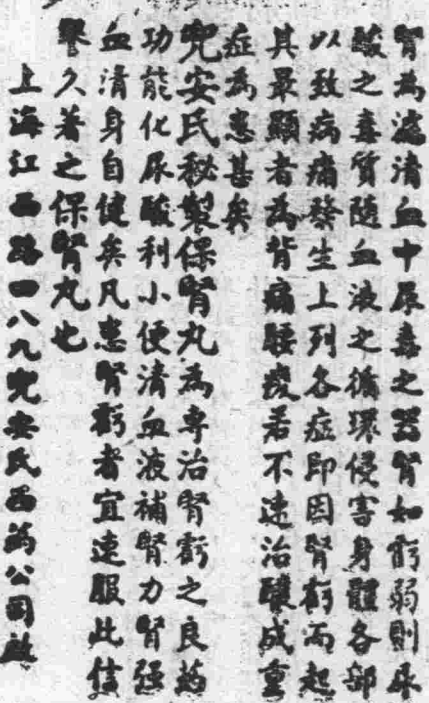 腎為濾清血中尿毒之器腎如虧弱則尿
酸之毒質隨血液之循環侵害身體各部
以致病痛發生上列各症即因腎虧而起
其最顯者為背痛腰痠若不速治釀成重
症為患甚矣
兜安氏秘製保腎丸為專治腎虧之良藥
功能化尿酸利小便清血液補腎力腎強
血清身自健矣凡患腎虧者宜速服此信
譽久著之保腎丸也
上海江西路四八九兜安氏西藥公司啟